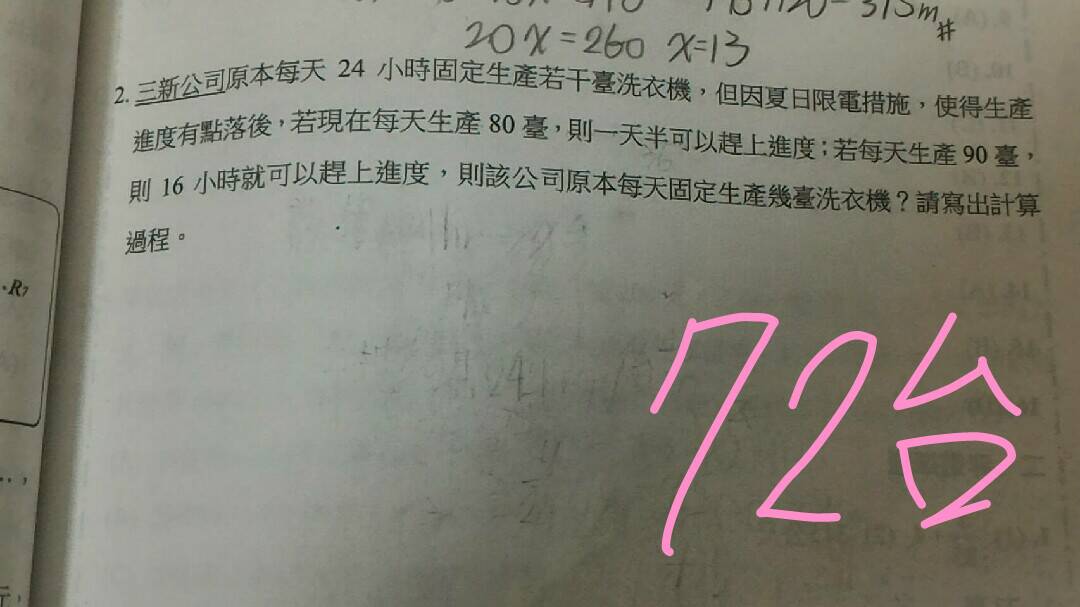 315m #
20x=260 x=13
2. 三新公司原本每天 24 小時固定生產若干臺洗衣機，但因夏日限電措施，使得生產
進度有點落後，若現在每天生產 80 臺，則一天半可以趕上進度；若每天生產 90 臺，
則 16 小時就可以趕上進度，則該公司原本每天固定生產幾臺洗衣機？請寫出計算
過程。
·R7
72台